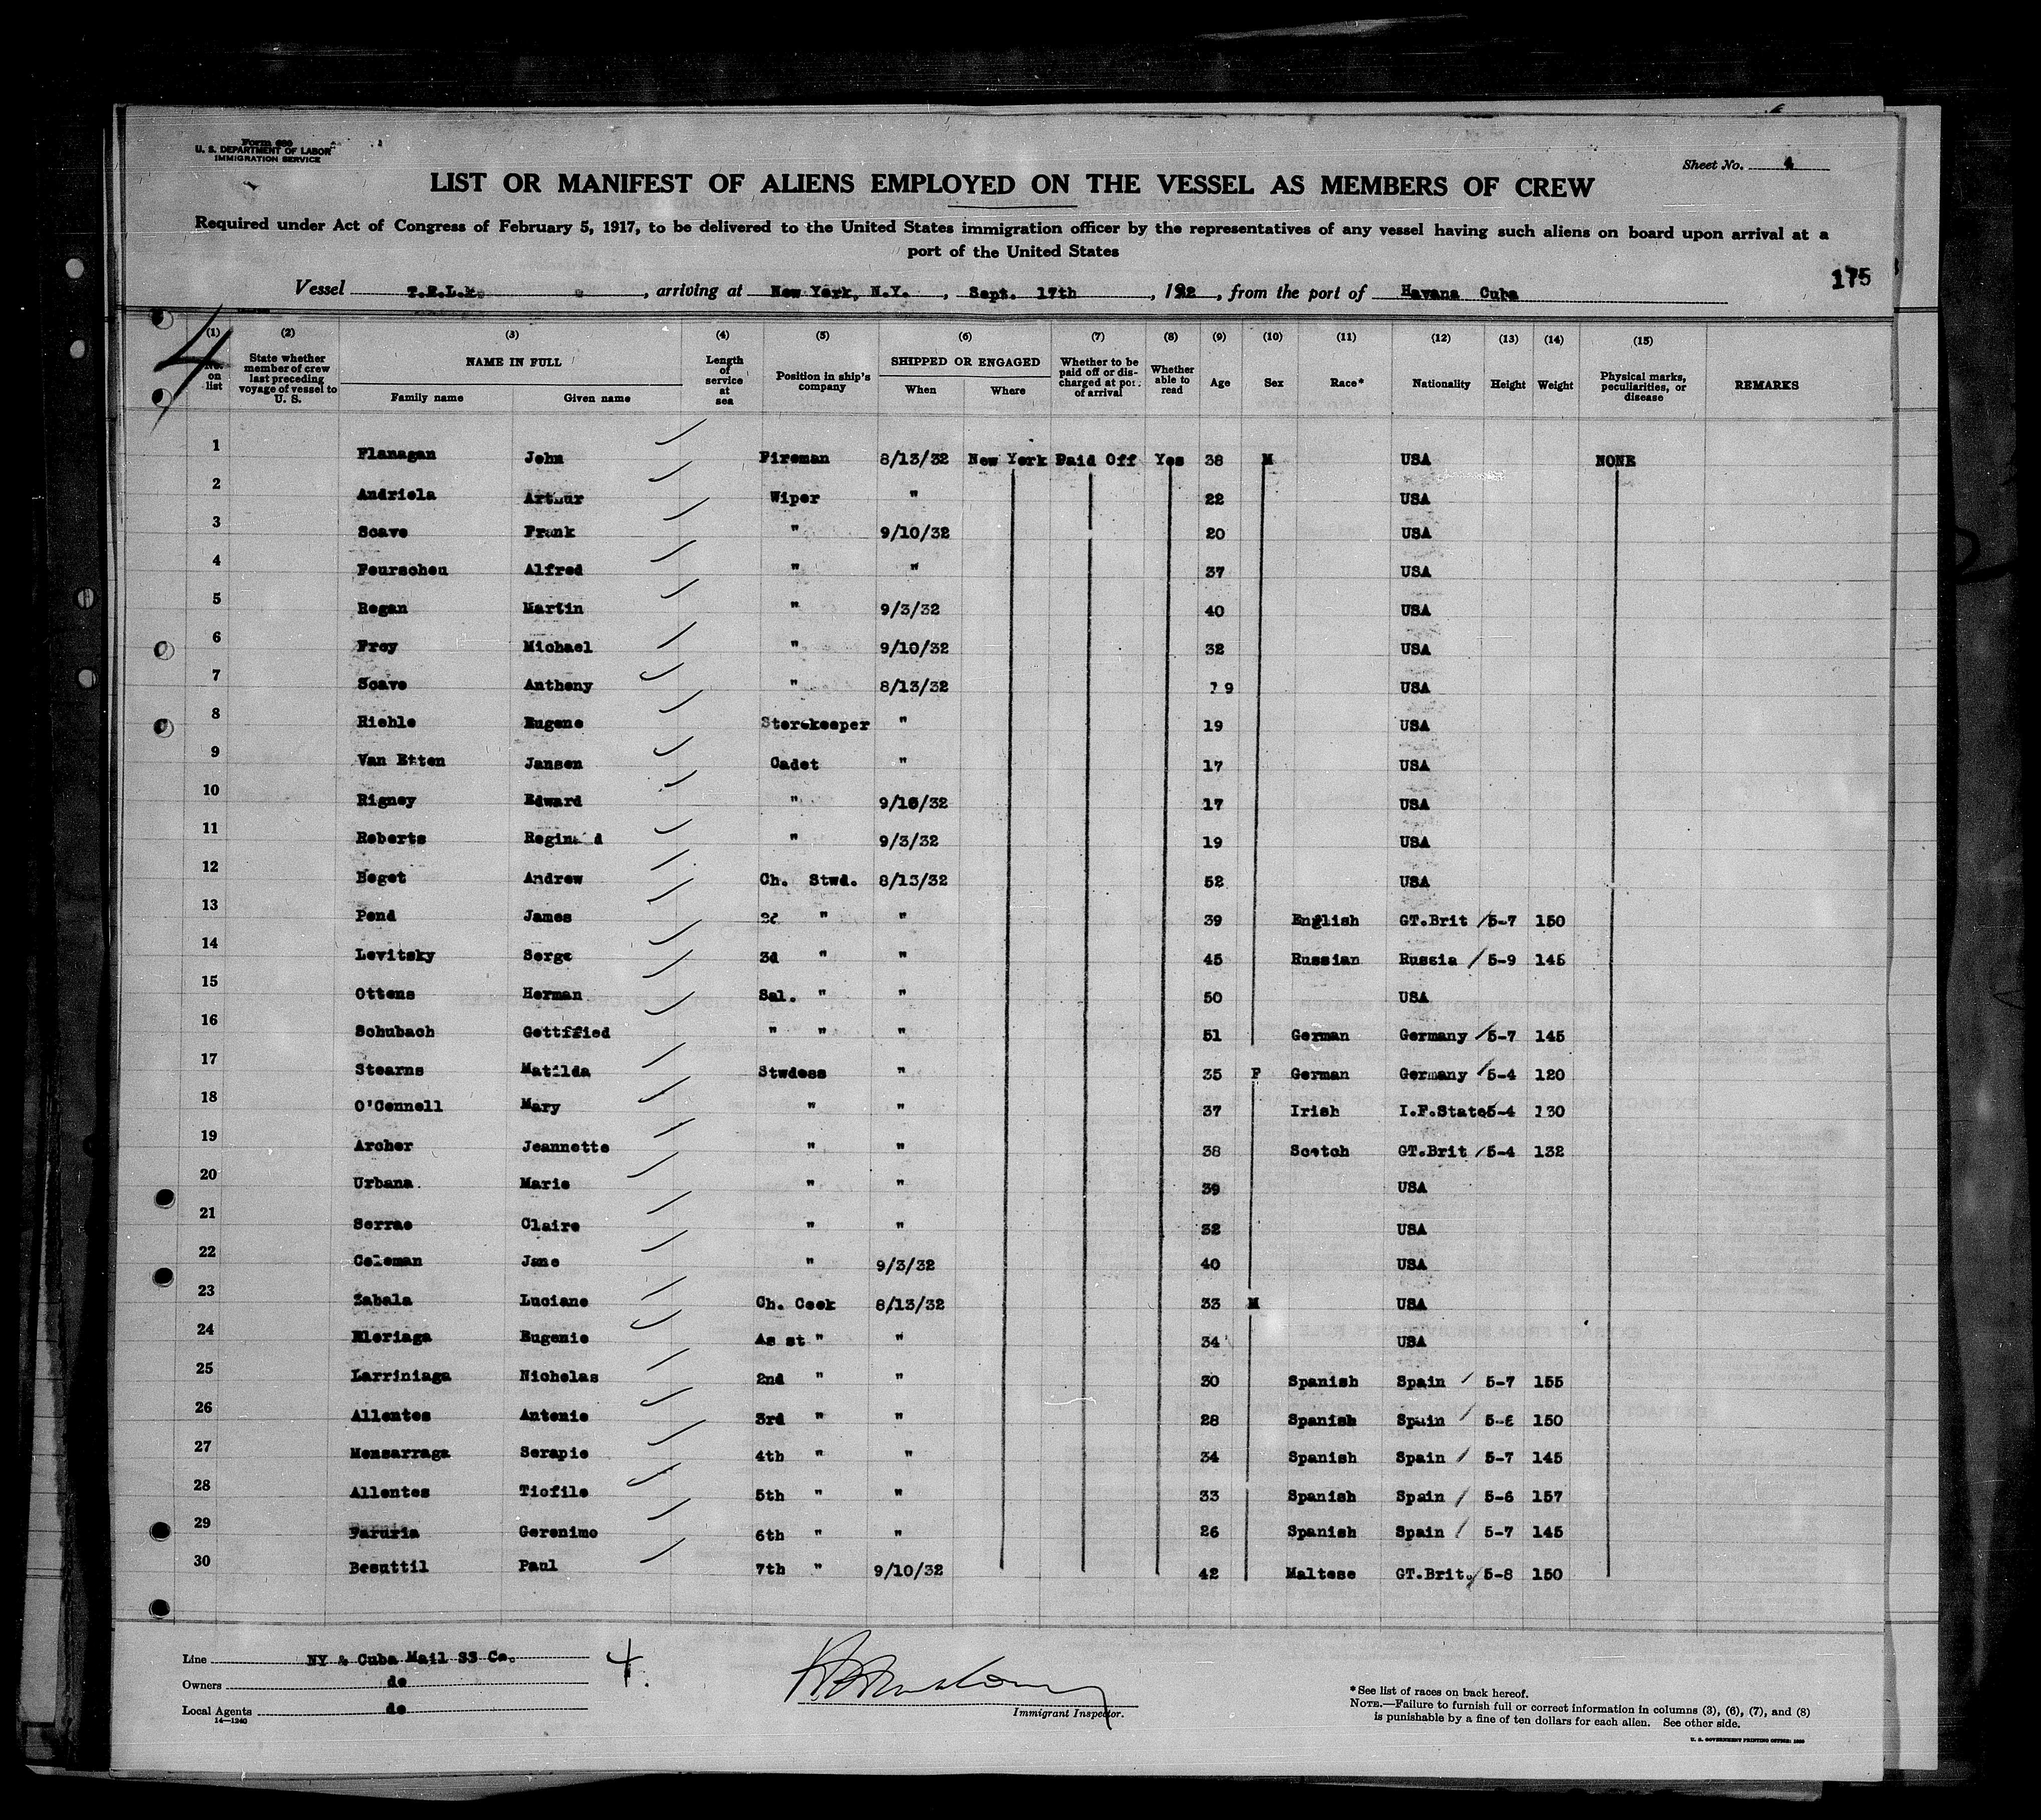 Form 680
U. S. DEPARTMENT OF LABOR
IMMIGRATION SERVICE
Sheet No. 4
LIST OR MANIFEST OF ALIENS EMPLOYED ON THE VESSEL AS MEMBERS OF CREW
Required under Act of Congress of February 5, 1917, to be delivered to the United States immigration officer by the representatives of any vessel having such aliens on board upon arrival at a
port of the United States
175
Vessel T.E.L.k. , arriving at New York, N.Y. , Sept. 17th , 1932 , from the port of Havana Cuba
4
(1) (2) (3) (4) (5) (6) (7) (8) (9) (10) (11) (12) (13) (14) (15)
No. on list State whether member of crew last preceding voyage of vessel to U. S. NAME IN FULL Family name Given name Length of service at sea Position in ship's company SHIPPED OR ENGAGED When Where Whether to be paid off or discharged at port of arrival Whether able to read Age Sex Race* Nationality Height Weight Physical marks, peculiarities, or disease REMARKS
1 Flanagan John Fireman 8/13/32 New York Paid Off Yes 38 M USA NONE
2 Andriola Arthur Wiper " 22 USA
3 Scave Frank " 9/10/32 20 USA
4 Fourscheu Alfred " " 37 USA
5 Regan Martin " 9/3/32 40 USA
6 Frey Michael " 9/10/32 32 USA
7 Scave Anthony " 8/13/32 19 USA
8 Riehle Eugene Storekeeper " 19 USA
9 Van Etten Jansen Cadet " 17 USA
10 Rigney Edward " 9/10/32 17 USA
11 Roberts Reginald " 9/3/32 19 USA
12 Boget Andrew Ch. Stwd. 8/13/32 52 USA
13 Pond James 2d " " 39 English GT.Brit 5-7 150
14 Levitsky Serge 3d " " 45 Russian Russia 5-9 145
15 Ottens Herman Sal. " " 50 USA
16 Schubach Gottffied " " " 51 German Germany 5-7 145
17 Stearns Matilda Stwdess " 35 F German Germany 5-4 120
18 O'Connell Mary " " 37 Irish I.F.State 5-4 130
19 Archer Jeannette " " 38 Scotch GT.Brit 5-4 132
20 Urbana Marie " " 39 USA
21 Serrao Claire " " 32 USA
22 Coleman Jane " 9/3/32 40 USA
23 Zabala Luciano Ch. Cook 8/13/32 33 M USA
24 Eloriaga Eugenio As st " " 34 USA
25 Larriniaga Nicholas 2nd " " 30 Spanish Spain 5-7 155
26 Allentos Antonio 3rd " " 28 Spanish Spain 5-6 150
27 Mensarraga Serapio 4th " " 34 Spanish Spain 5-7 145
28 Allentos Tiofilo 5th " " 33 Spanish Spain 5-6 157
29 Faruria Geronimo 6th " " 26 Spanish Spain 5-7 145
30 Besuttil Paul 7th " 9/10/32 42 Maltese GT.Brit. 5-8 150
Line NY & Cuba Mail SS Co.
Owners do
Local Agents do
14—1240
4.
Immigrant Inspector.
*See list of races on back hereof.
NOTE.—Failure to furnish full or correct information in columns (3), (6), (7), and (8)
is punishable by a fine of ten dollars for each alien. See other side.
U. S. GOVERNMENT PRINTING OFFICE: